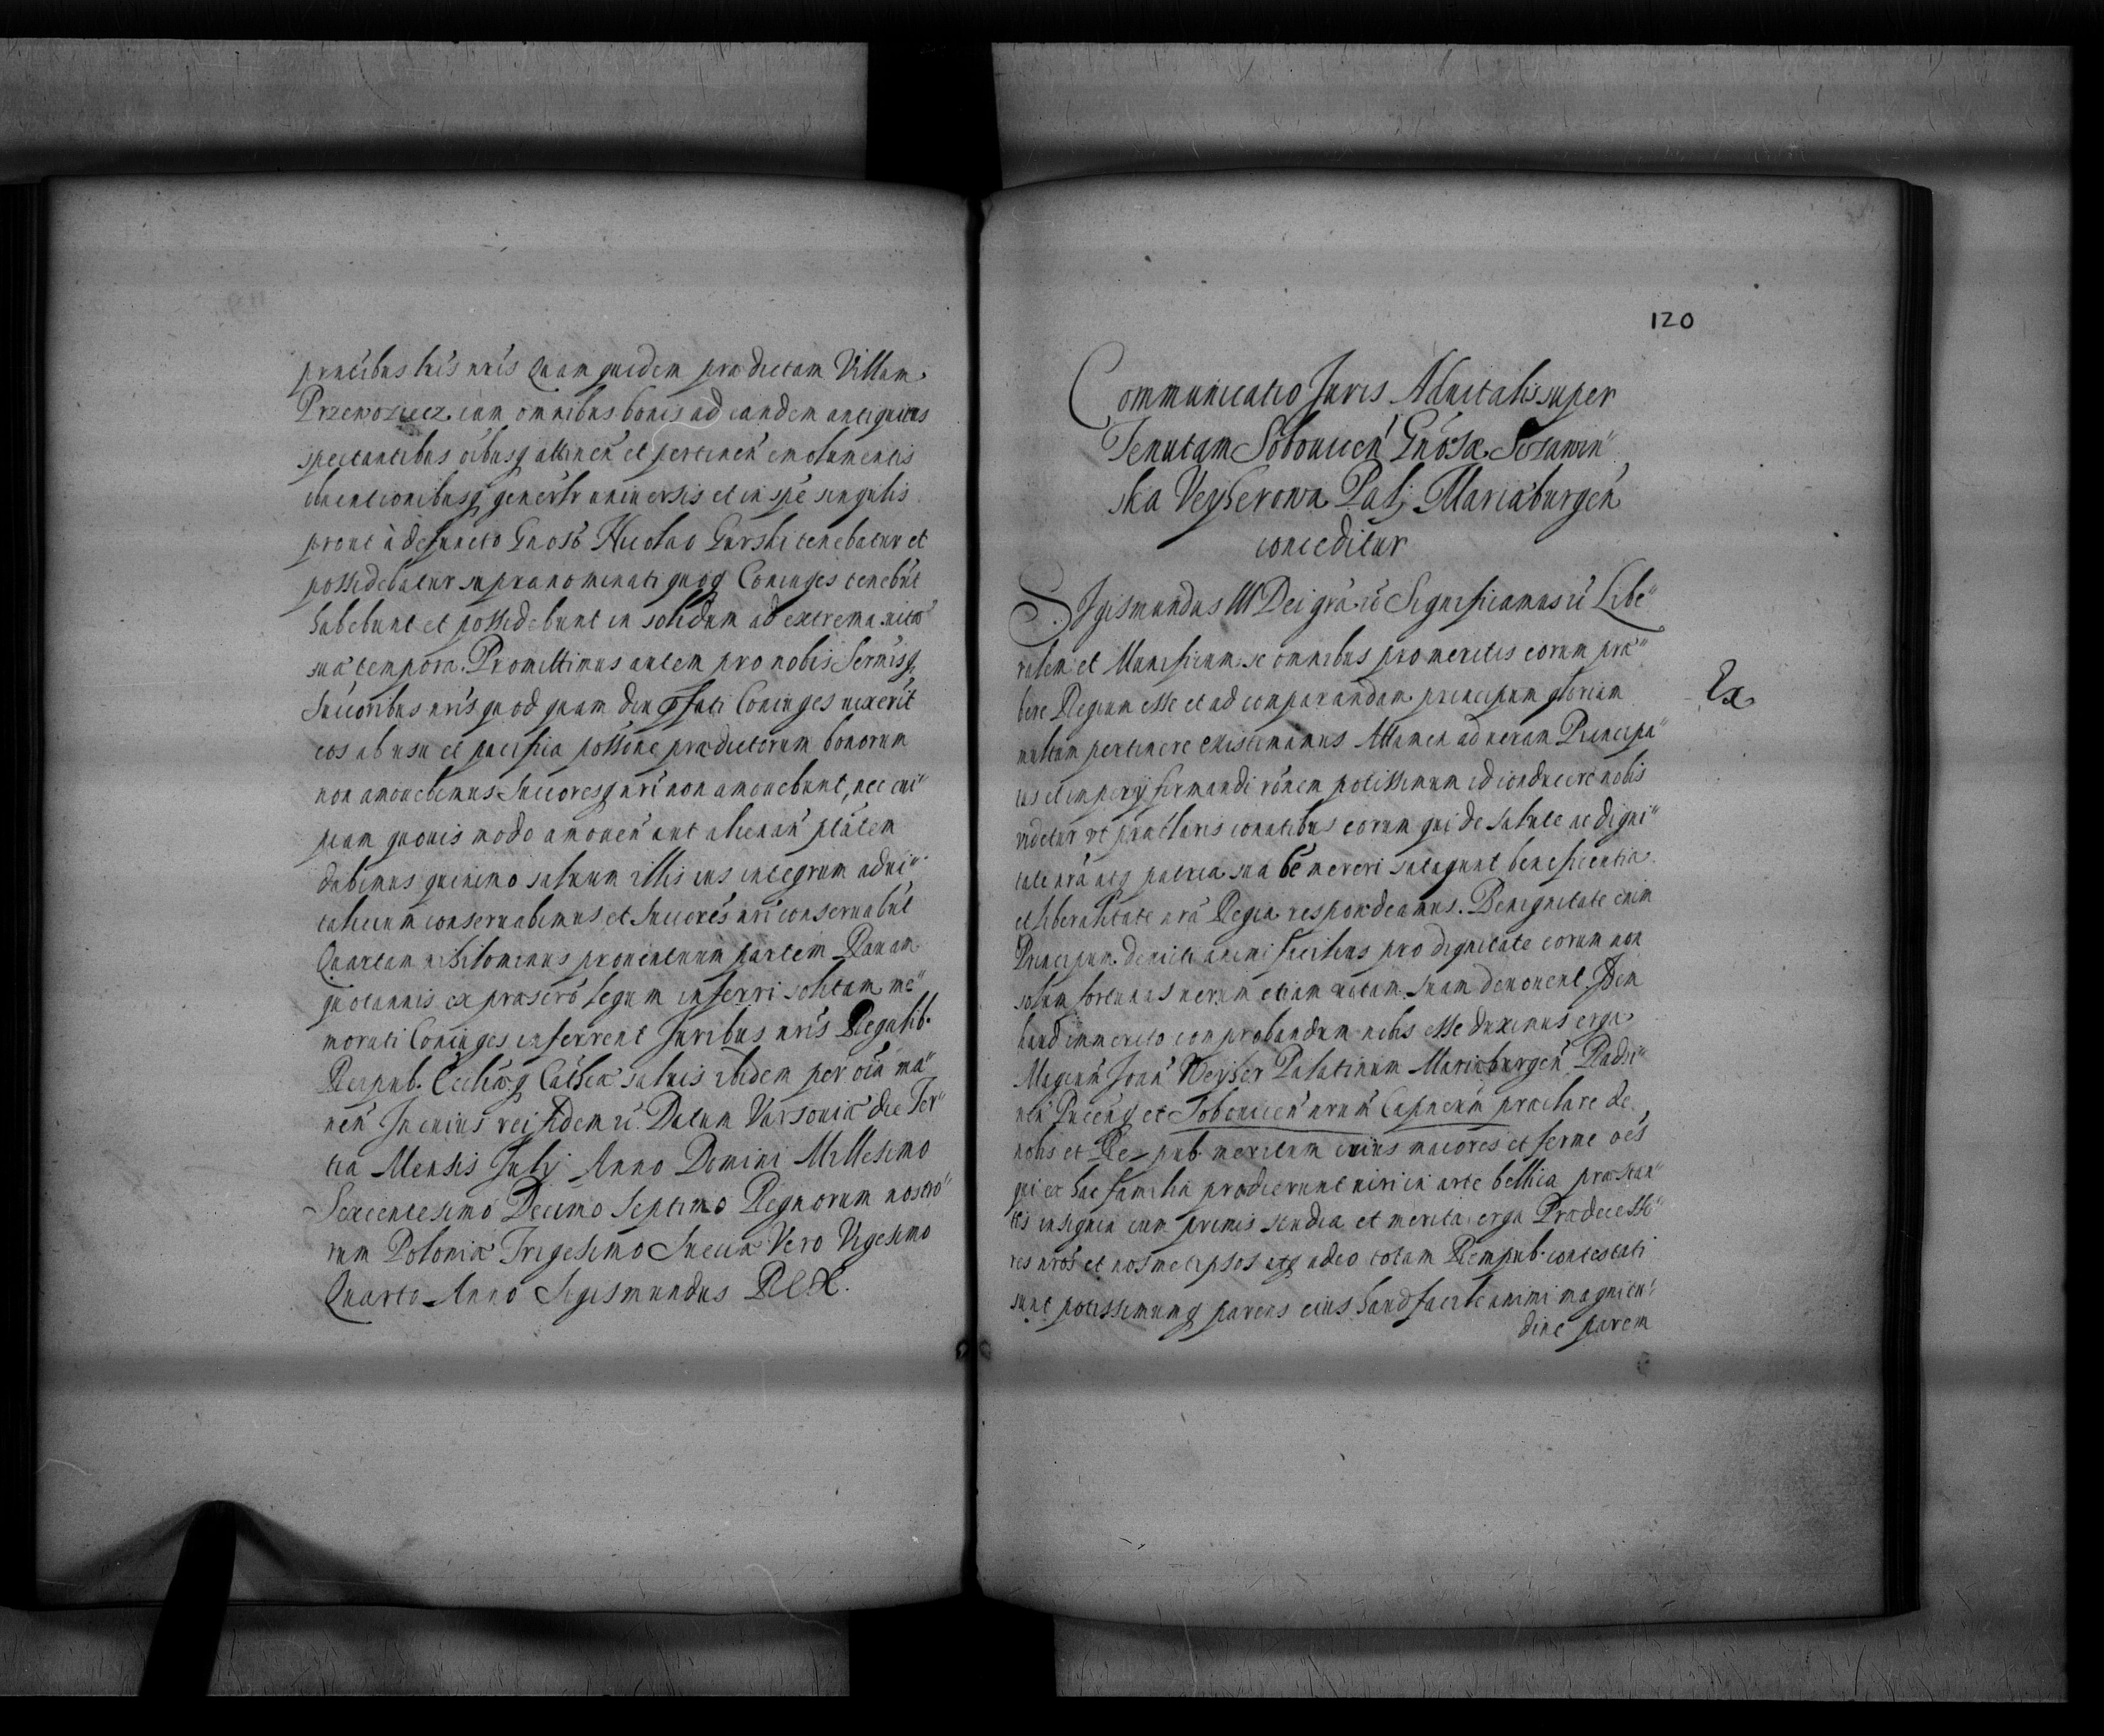 pntibus his nris Quam quidem prædictam Villam
Przewoziecz cum omnibus bonis ad eandem antiquitus
spectantibus oibusq attinen et pertinen emolumentis
obuentionibusq generlr uniuersis et in spe singulis
prout à defuncto Gnoso Nicolao Gurski tenebatur et
possidebatur supranominati quoq Coniuges tenebut
habebunt et possidebunt in solidum ad extrema uitæ
suæ tempora. Promittimus autem pro nobis Sermisq
Succoribus nris quod quam diu pfati Coniuges uixerit
eos ab usu et pacifica possone prædictorum bonorum
non amouebimus Succoresq nri non amouebunt, nec cui"
piam quouis modo amouen aut alienan ptatem
dabimus quinimo saluum illis ius integrum adui"
talicium conseruabimus et Succores nri conseruabut
Quartam nihilominus prouentuum partem Rauam
quotannis ex præscro legum inferri solitam me"
morati Coniuges inferrent Juribus nris Regalib.
Reipub. Eccliæq Cathcæ saluis ibidem per oia ma"
nen In cuius rei fidem ec. Datum Varsouiæ die Ter"
tia Mensis July Anno Domini Millesimo
Sexcentesimo Decimo Septimo Regnorum nostro"
rum Poloniæ Trigesimo Sueciæ Vero Vigesimo
Quarto Anno Sigismundus Rex.
120
Communicatio Juris Aduitalis super
Tenutam Sobouicen Gnosæ
ska Veyherowa Palj Mariæburgen
conceditur
Sigismundus III Dei gra ec Significamus ec Libe"
ralem et Munificum se omnibus pro meritis eorum præ"
bere Regium esse et ad comparandam principum gloriam
multum pertinere existimamus Attamen ad ueram Principa"
tus et impery firmandi ronem potissimum id conducere nobis
uidetur vt præclaris conatibus eorum qui de salute ac digni"
tate nra atq patria sua be mereri satagunt beneficentia
et liberalitate nra Regia respondeamus. Benignitate enim
Principum deuicti animi facilius pro dignitate eorum non
solum fortunas uerum etiam uitam suam deuouent. Idem
haud immerito comprobandum nobis esse duximus erga
Magcum Joan Weyher Palatinum Mariæburgen Radzi"
nen Pucenq et Sobouicen nrum Capneum præclare de
nobis et Repub. meritum cuius maiores et ferme oes
qui ex hac familia prodierunt uiri in arte bellica præstan"
tes insignia cum primis studia et merita erga Prædecesso"
res nros et nosmetipsos atq adeo totam Rempub. contestati
sunt potissimumq parens eius haud facile animi magnitu"
dine parem